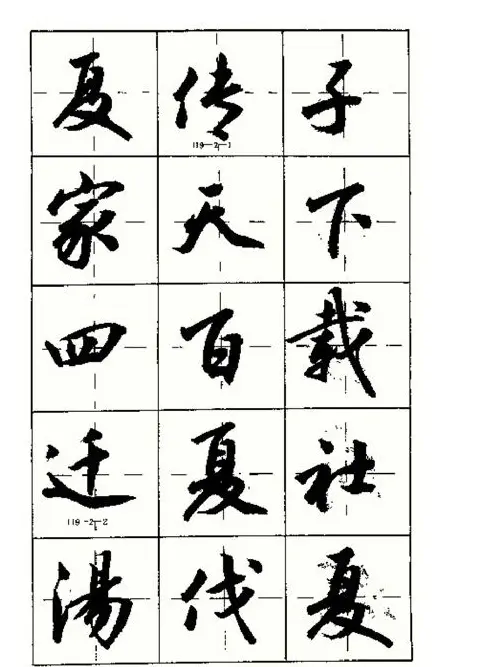 夏传子
119-2-1
家天下
四百载
迁夏社
119-2-2
湯伐夏